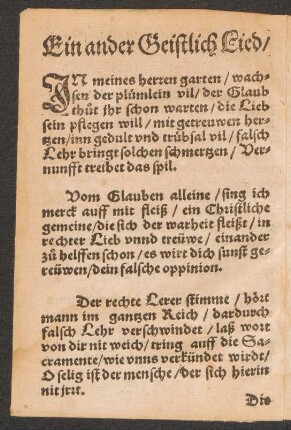 Ein ander Geistlich Lied/
IN meines herren garten / wach-
sen der plümlein vil / der Glaub
thůt jhr schon warten / die Lieb
sein pflegen will / mit getreuwen her-
tzen / inn gedult vnd trübsal vil / falsch
Lehr bringt solchen schmertzen / Ver-
nunfft treibet das spil.
Vom Glauben alleine / sing ich
merck auff mit fleiß / ein Christliche
gemeine / die sich der warheit fleißt / in
rechter Lieb vnnd treüwe / einander
zů helffen schon / es wirt dich sunst ge-
reüwen / dein falsche oppinion.
Der rechte Lerer stimme / hört
mann im gantzen Reich / dardurch
falsch Lehr verschwindet / laß wort
von dir nit weich / tring auff die Sa-
cramente / wie vnns verkündet wirdt /
O selig ist der mensche / der sich hierin
nit jrrt.
Die